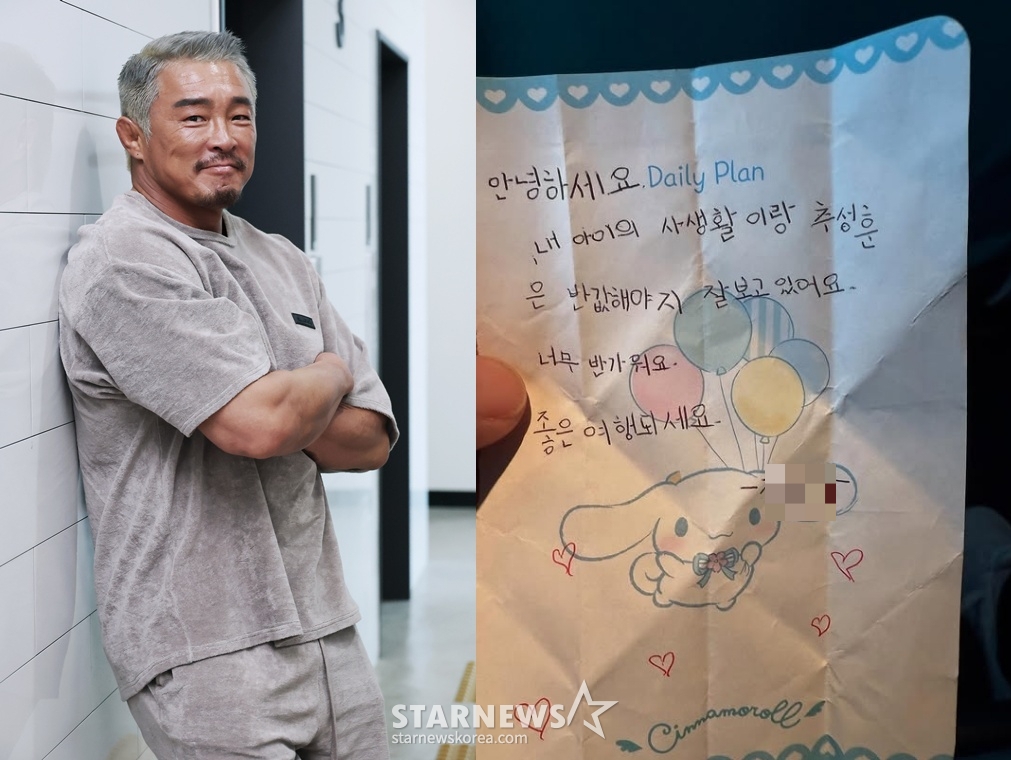 안녕하세요. Daily Plan
내 아이의 사생활 이랑 추성훈
은 반값해야지 잘 보고 있어요.
너무 반가워요.
좋은 여행되세요.
Cinnamoroll
STARNEWS
starnewskorea.com